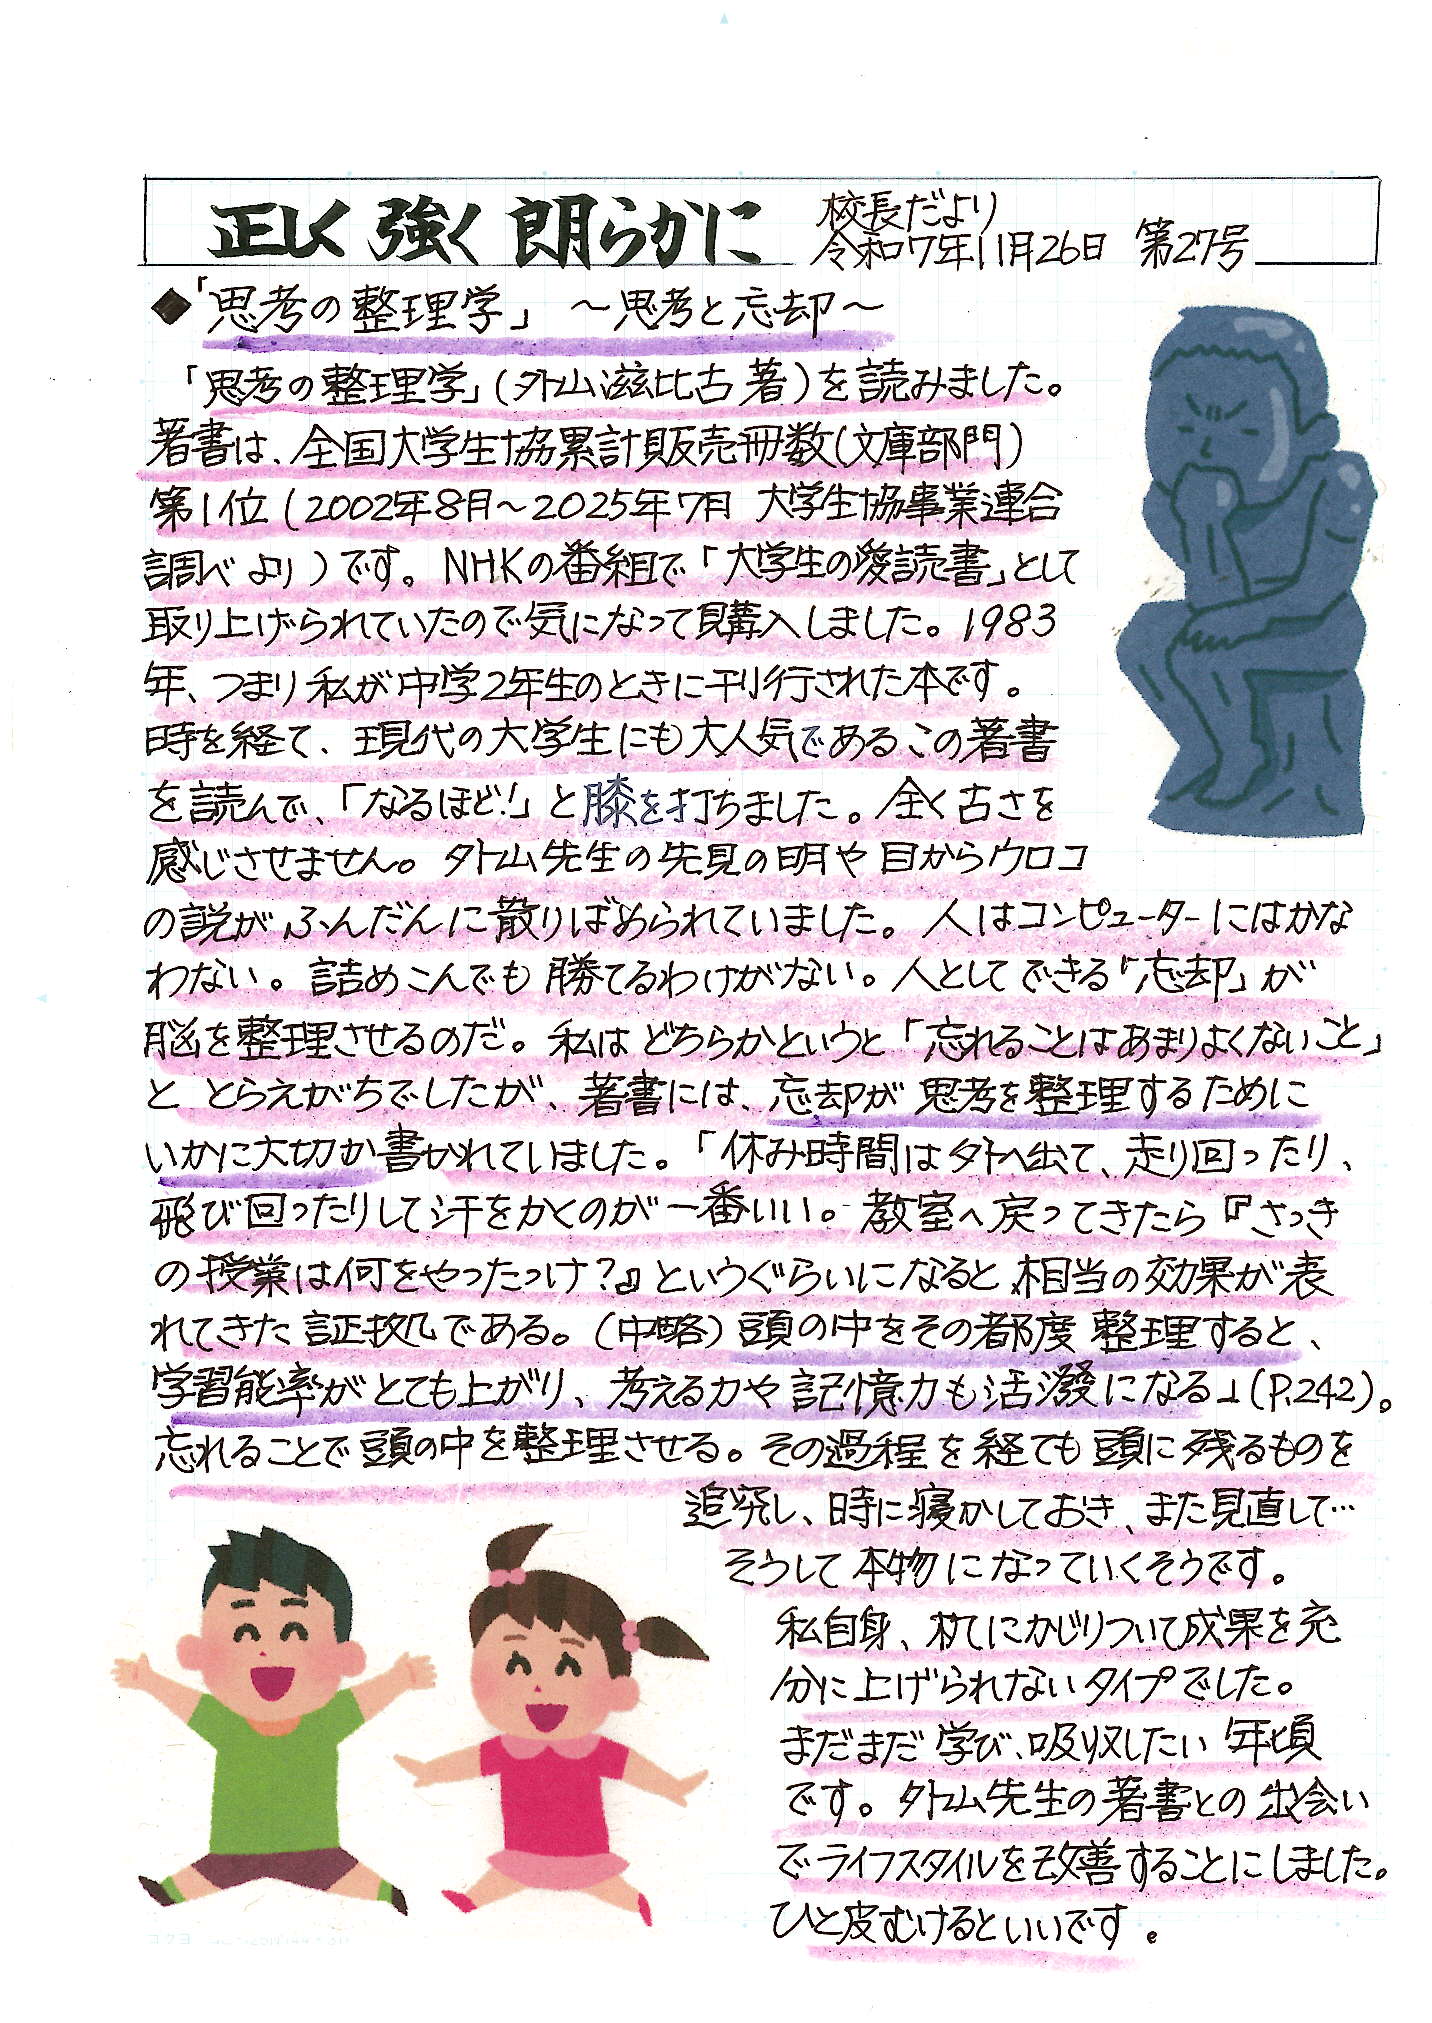 正しく 強く 朗らかに
校長だより
令和7年11月26日 第27号
◆「思考の整理学」 ～思考と忘却～
「思考の整理学」(外山滋比古 著)を読みました。
著書は、全国大学生協累計販売冊数(文庫部門)
第1位(2002年8月～2025年7月 大学生協事業連合
調べより)です。NHKの番組で「大学生の愛読書」として
取り上げられていたので気になって購入しました。1983
年、つまり私が中学2年生のときに刊行された本です。
時を経て、現代の大学生にも大人気であるこの著書
を読んで、「なるほど!」と膝を打ちました。全く古さを
感じさせません。外山先生の先見の明や目からウロコ
の説がふんだんに散りばめられていました。人はコンピューターにはかな
わない。詰めこんでも勝てるわけがない。人としてできる「忘却」が
脳を整理させるのだ。私はどちらかというと「忘れることはあまりよくないこと」
と とらえがちでしたが、著書には、忘却が思考を整理するために
いかに大切か書かれていました。「休み時間は外へ出て、走り回ったり、
飛び回ったりして汗をかくのが一番いい。教室へ戻ってきたら『さっき
の授業は何をやったっけ?』というぐらいになると相当の効果が表
れてきた証拠である。(中略)頭の中をその都度整理すると、
学習能率がとても上がり、考える力や記憶力も活潑になる」(P.242)。
忘れることで頭の中を整理させる。その過程を経ても頭に残るものを
追究し、時に寝かしておき、また見直して…
そうして本物になっていくそうです。
私自身、机にかじりついて成果を充
分に上げられないタイプでした。
まだまだ学び、吸収したい年頃
です。外山先生の著書との出会い
でライフスタイルを改善することにしました。
ひと皮むけるといいです。